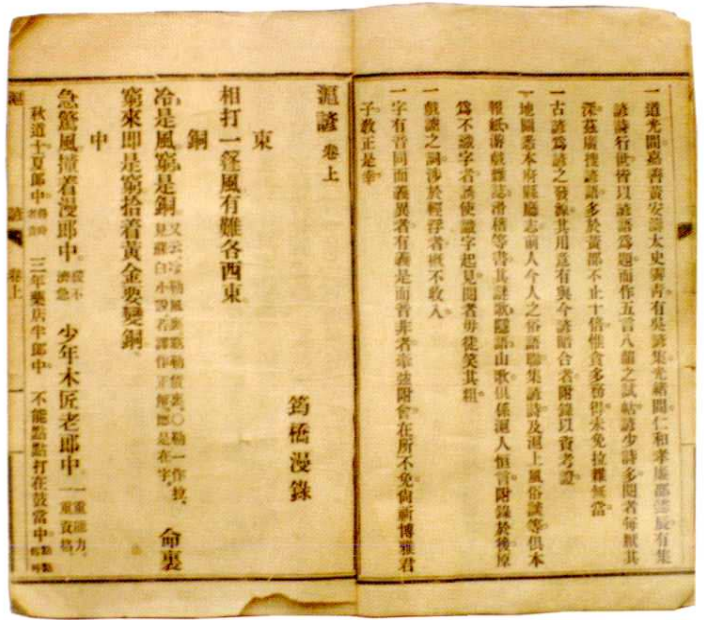 一道光間嘉善黃安濤太史霽青有吳諺集光緒間仁和孝廉鄒
諺詩行世皆以諺語為題而作五言八韻之試帖諺少詩多閱者每厭其
深茲廣搜諺語多於黃鄒不止十倍惟貪多務得未免拉雜無當
一古諺為諺之發源其用意有與今諺暗合者附錄以資考證
一地圖悉本府縣廳志前人今人之俗語聯集諺詩及滬上風俗談等俱本
報紙游戲雜誌滑稽等書其謎歌隱語山歌俱係滬人恒言附錄於後原
為不識字者誘使識字起見閱者毋徒笑其粗
一戲謔之詞涉於輕浮者概不收入
一字有音同而義異者有義是而音非者牽強附會在所不免尚祈博雅君
子教正是幸
滬諺 卷上
筠橋漫錄
東
相打一篷風有難各西東
銅
冷是風窮是銅 又云冷勒風窮勒銅 ○勒一作拉 見蘇白小說 應是在字 命裏
窮來即是窮拾着黃金要變銅
中
急驚風撞着漫郎中 緩不濟急 少年木匠老郎中 一重能力一重資格
秋道士夏郎中 三年藥店半郎中 不能點點打在鼓當中
滬 諺 卷上